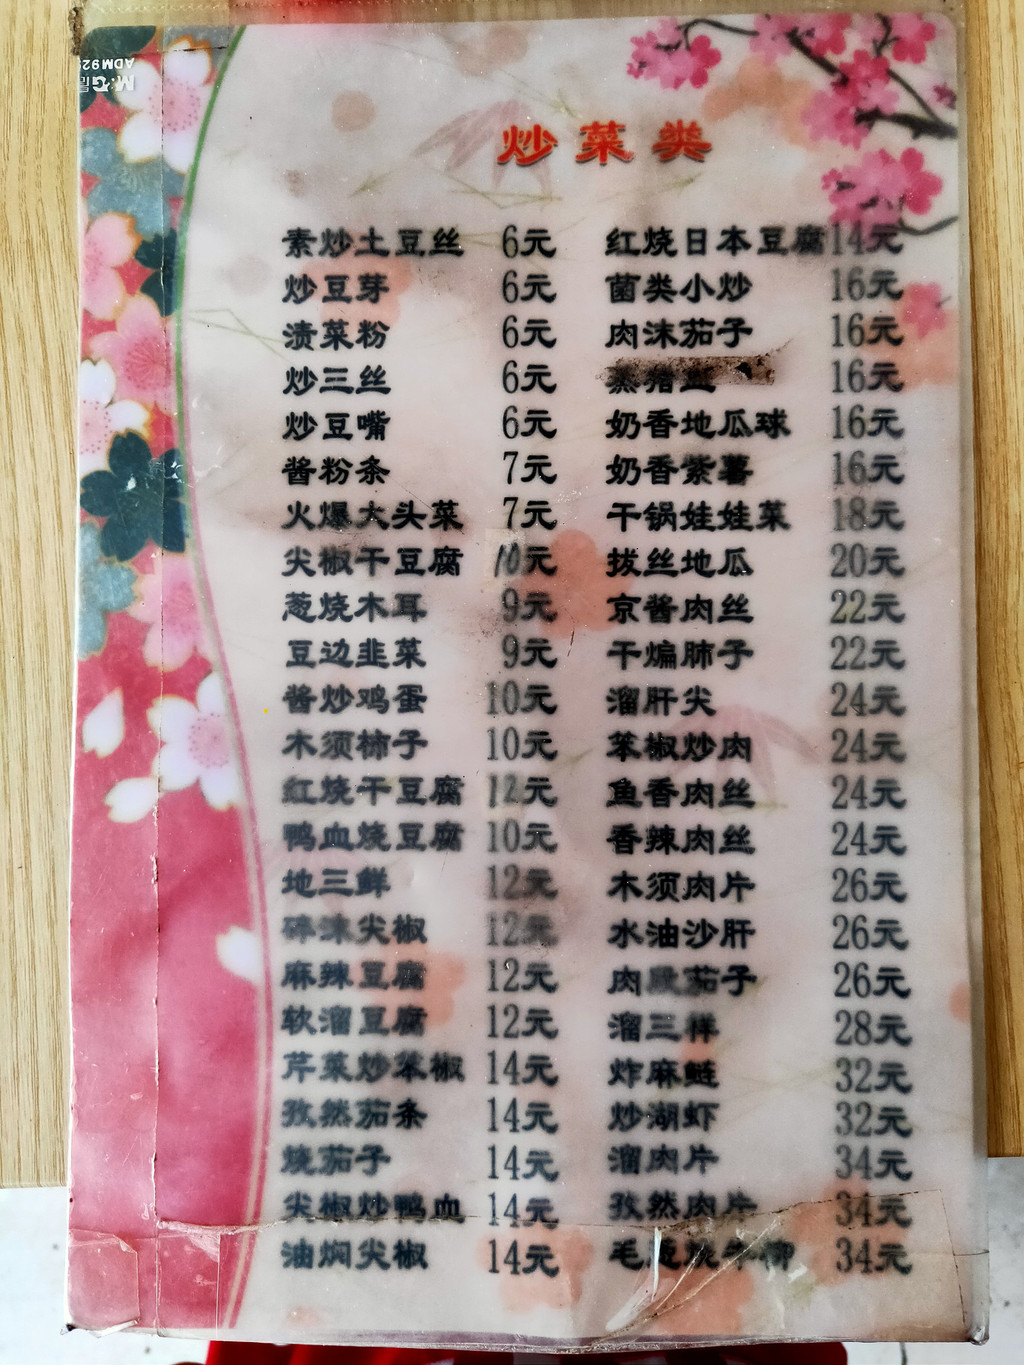 M&G
ADM929
炒菜类
素炒土豆丝 6元
炒豆芽 6元
渍菜粉 6元
炒三丝 6元
炒豆嘴 6元
酱粉条 7元
火爆大头菜 7元
尖椒干豆腐 10元
葱烧木耳 9元
豆边韭菜 9元
酱炒鸡蛋 10元
木须柿子 10元
红烧干豆腐 12元
鸭血烧豆腐 10元
地三鲜 12元
沫尖椒 12元
麻辣豆腐 12元
软溜豆腐 12元
芹菜炒笨椒 14元
孜然茄条 14元
烧茄子 14元
尖椒炒鸭血 14元
油焖尖椒 14元
红烧日本豆腐 14元
菌类小炒 16元
肉沫茄子 16元
16元
奶香地瓜球 16元
奶香紫薯 16元
干锅娃娃菜 18元
拔丝地瓜 20元
京酱肉丝 22元
干煸肺子 22元
溜肝尖 24元
笨椒炒肉 24元
鱼香肉丝 24元
香辣肉丝 24元
木须肉片 26元
水油沙肝 26元
肉段茄子 26元
溜三样 28元
炸麻鲢 32元
炒湖虾 32元
溜肉片 34元
孜然肉片 34元
毛葱 牛柳 34元